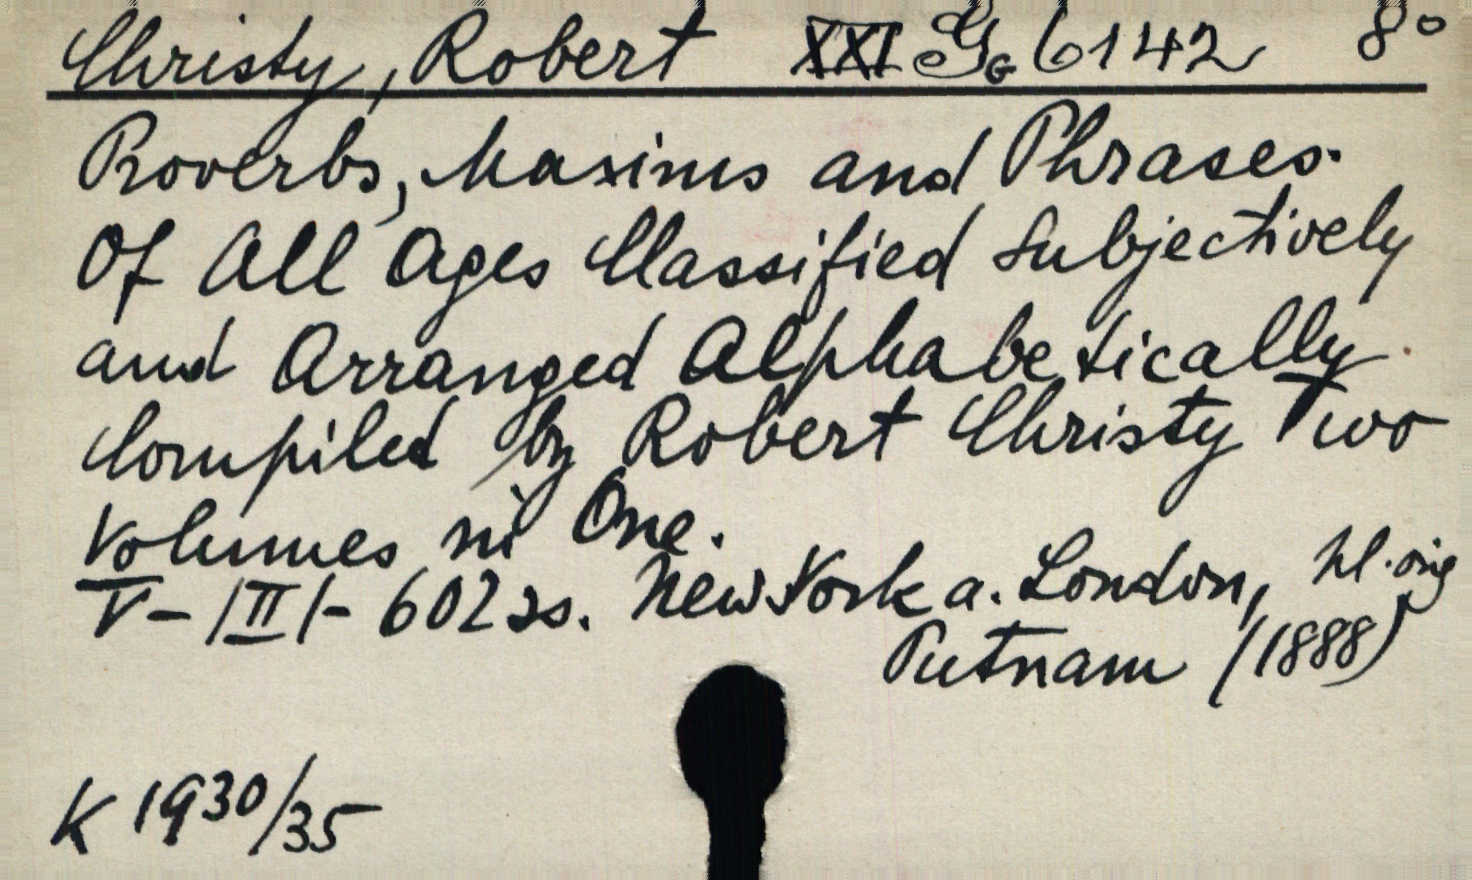 Christy, Robert XXI Gg 6142 8°
Proverbs, Maxims and Phrases.
Of All Ages Classified Subjectively
and Arranged Alphabetically.
Compiled by Robert Christy Two
Volumes in One.
V - /II/ - 602 New York a. London,
Putnam (1888)
K 1930/35